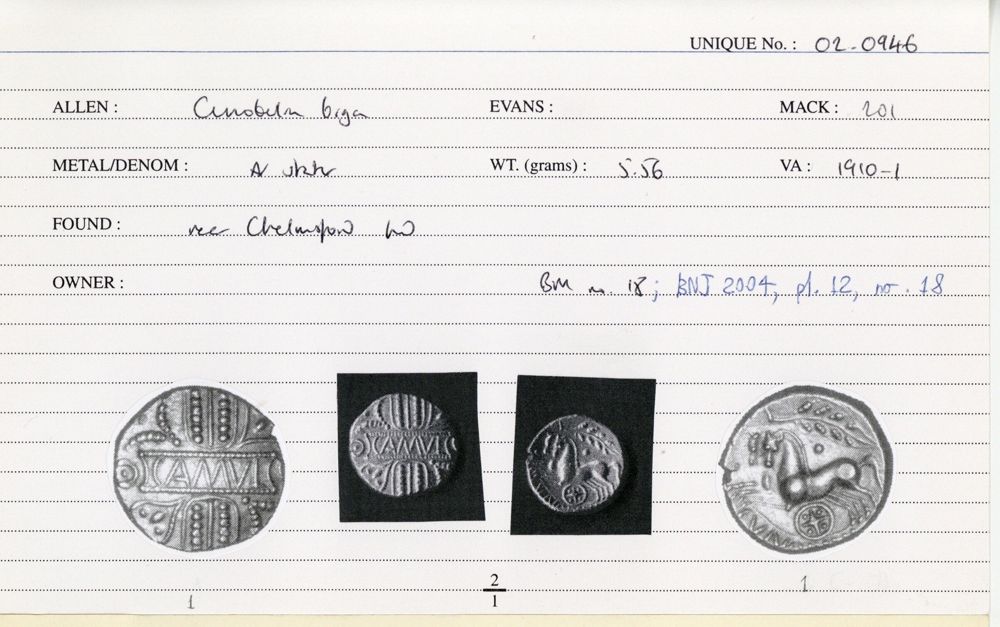 UNIQUE No. : 02-0946
ALLEN : Cunobelin biga EVANS : MACK : 201
METAL/DENOM : AV stater WT. (grams) : 5.56 VA : 1910-1
FOUND : near Chelmsford
OWNER :
BM no. 18; BNJ 2004, pl. 12, no. 18
CAMVL CAMVL
1 2 1
1